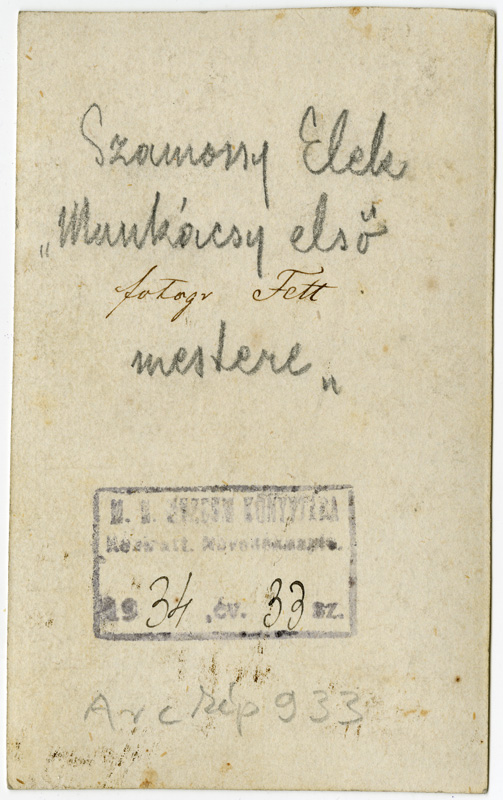 Szamossy Elek
„Munkácsy első
fotogr Fett
mestere„
M. N. MÚZEUM KÖNYVTÁRA
1934 .év. 33 sz.
Arckép 933